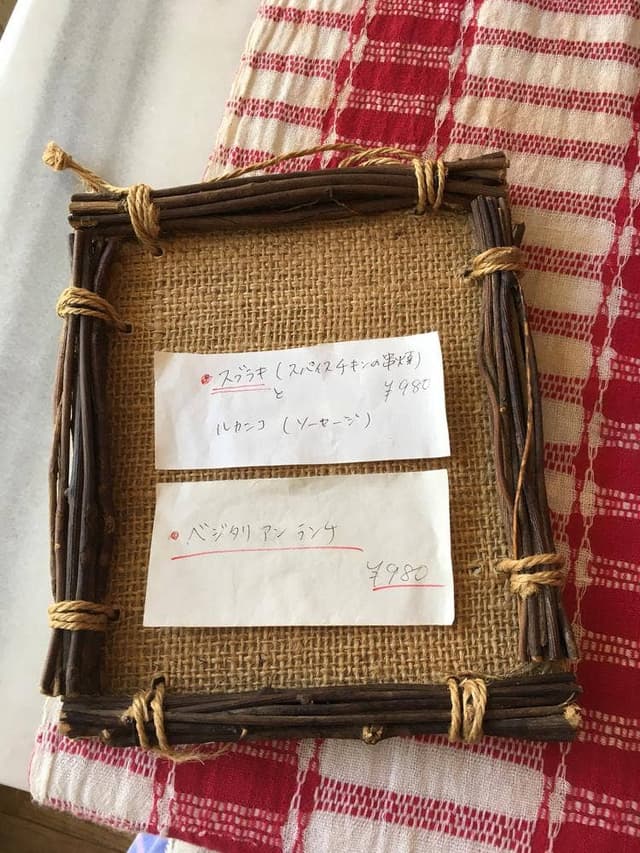 • スブラキ (スパイスチキンの串焼)
と ¥980
ルカンコ (ソーセージ)
• ベジタリアンランチ
¥980